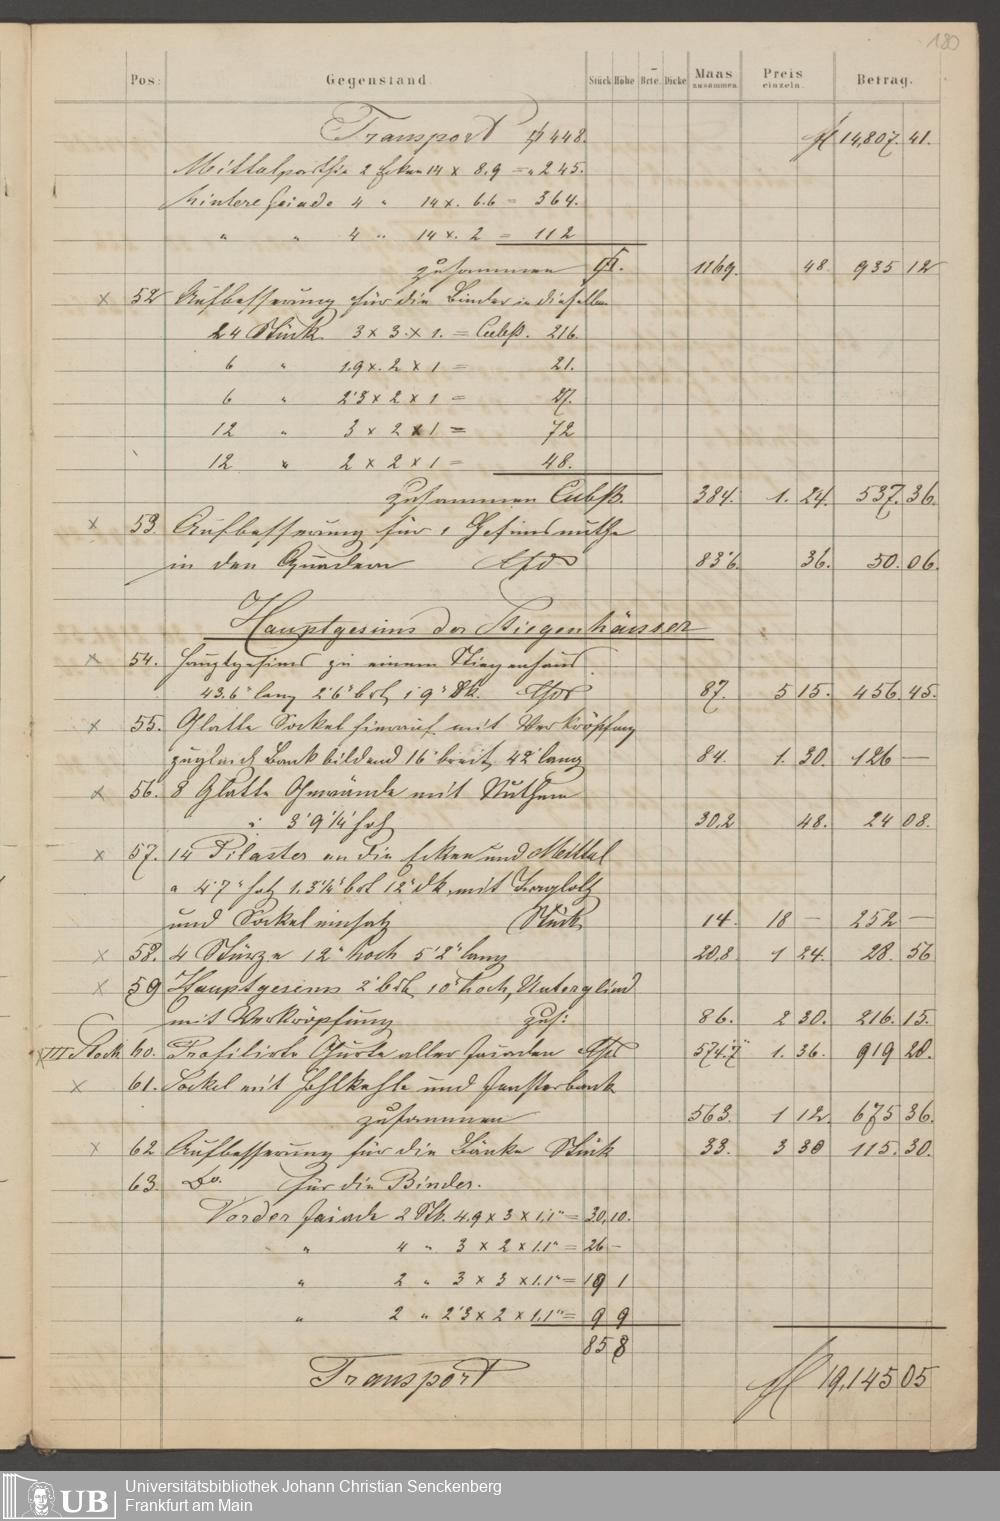 180
Pos: Gegenstand. Stück Höhe Brte. Dicke Maas zusammen. Preis einzeln. Betrag.
Transport 448. fl 14,807. 41.
2 Ecken 14 x 8.9 = „ 245.
hintere Faciade 4 „ 14 x. 6.6 = 364.
„ „ 4 „ 14 x. 2 = 112
zusammen 1169. 48. 935 12
x 52 Aufbesserung für die Binder in dieselben
24 Stück 3 x 3. x 1. = Cubß. 216.
6 „ 1.9 x. 2 x 1 = 21.
6 „ 2'3 x 2 x 1 = 27.
12 „ 3 x 2 x 1 = 72
12 „ 2 x 2 x 1 = 48.
zusammen Cubß. 384. 1. 24. 537. 36.
x 53. Aufbesserung für Gesimsnuthe
in den Quadern 83'6. 36. 50. 06.
Hauptgesims der Stiegenhäuser
x 54. Hauptgesims zu einem Stiegenhaus
43.6" lang 2'6" brt 1'9" dk. 87. 5 15. 456. 45.
x 55. Glatte Sockel hierauf mit Verkröpfung
zugleich Bank bildend 16" breit, 42' lang 84. 1. 30. 126 —
x 56. 8 Glatte Gewände mit Nuthen
à 3' 9 1/4" hoh 30.2 48. 24 08.
x 57. 14 Pilaster an die Ecken und Mittel
a 4' 7" hoh 1.3 1/4" brt 12" dk. mit
und Sockel einsatz Stück 14. 18 — 252 —
x 58. 4 Stürze 12" hoch 5' 2" lang 20,8. 1 24. 28. 56
x 59 Hauptgesims 2' brt. 10" hoch, Unterglied
mit Verkröpfung zus: 86. 2 30. 216. 15.
x III Stock 60. Profilirte Gurte aller Faciaden 574.7" 1. 36. 919 20.
x 61. Sockel mit Hohlkehle und Fensterbank
zusammen 563. 1 12. 675 36.
x 62 Aufbesserung für die Bänke Stück 33. 3 30 115. 30.
63. Do. für die Binder.
Vorder Faciade 2 Stk. 4.9 x 3 x 1,1" = 30, 10.
„ 4 „ 3 x 2 x 1.1" = 26 –
„ 2 „ 3 x 3 x 1.1" = 19 1
„ 2 „ 2'3 x 2 x 1,1" = 9 9
85 8
Transport fl 19,145 05
UB Universitätsbibliothek Johann Christian Senckenberg
Frankfurt am Main